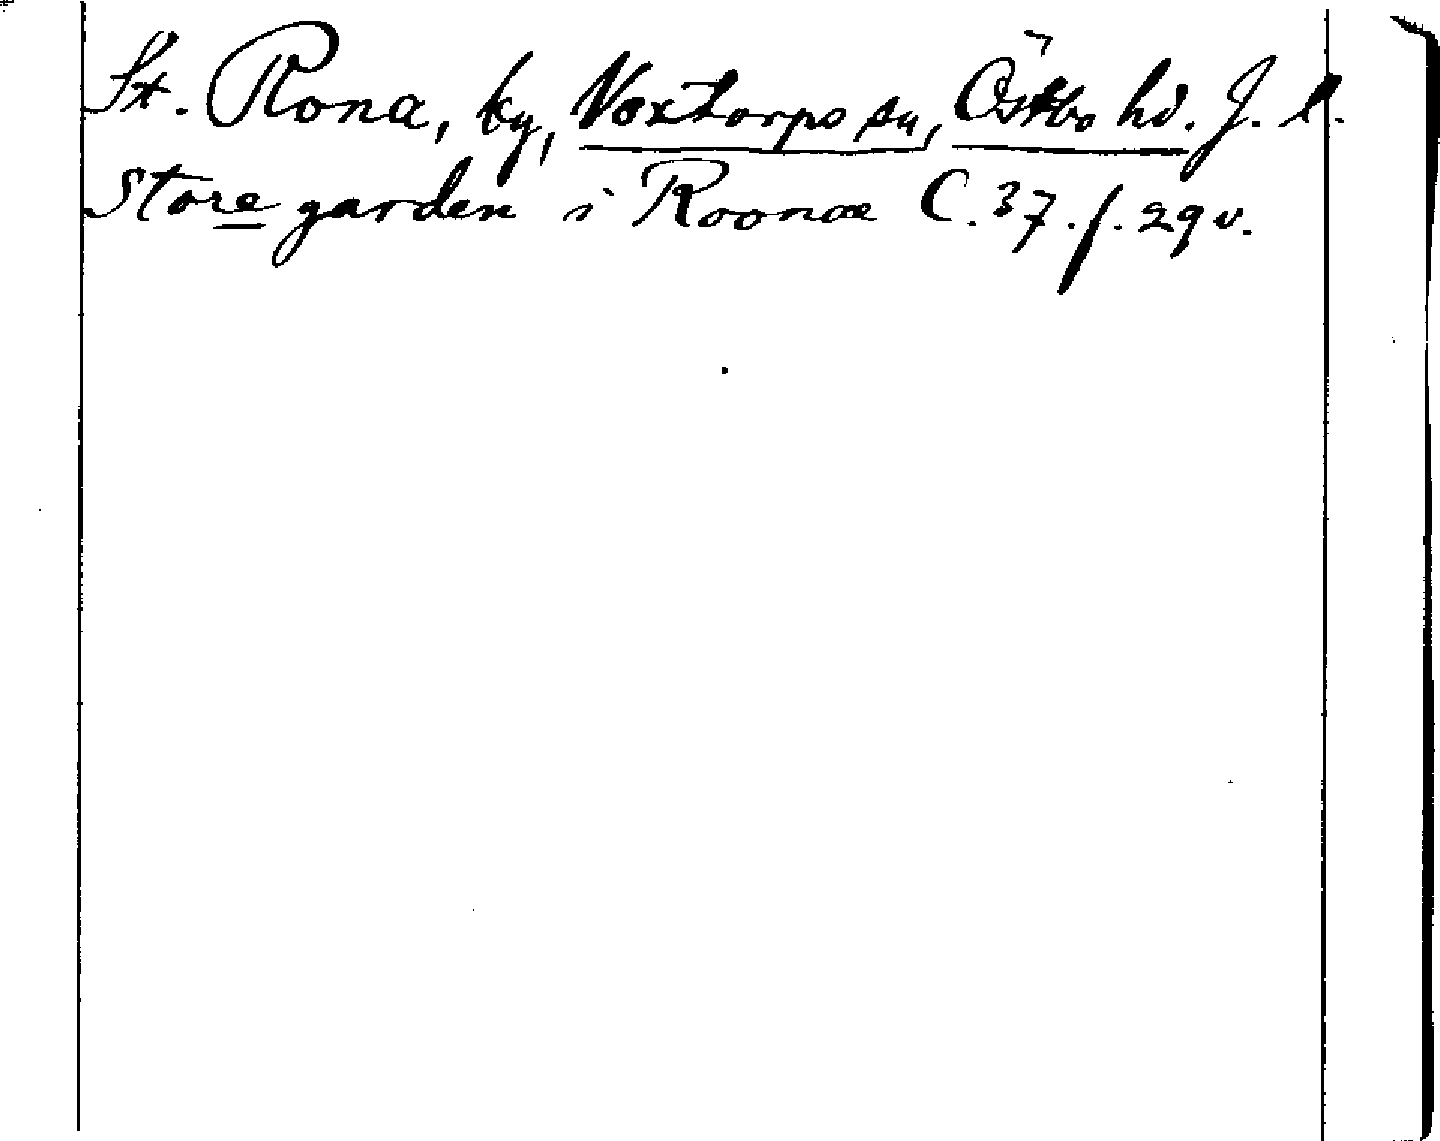 St. Rona, by, Voxtorps sn, Östbo hd. J. l.
Store garden i Roonæ C. 37. f. 29 v.